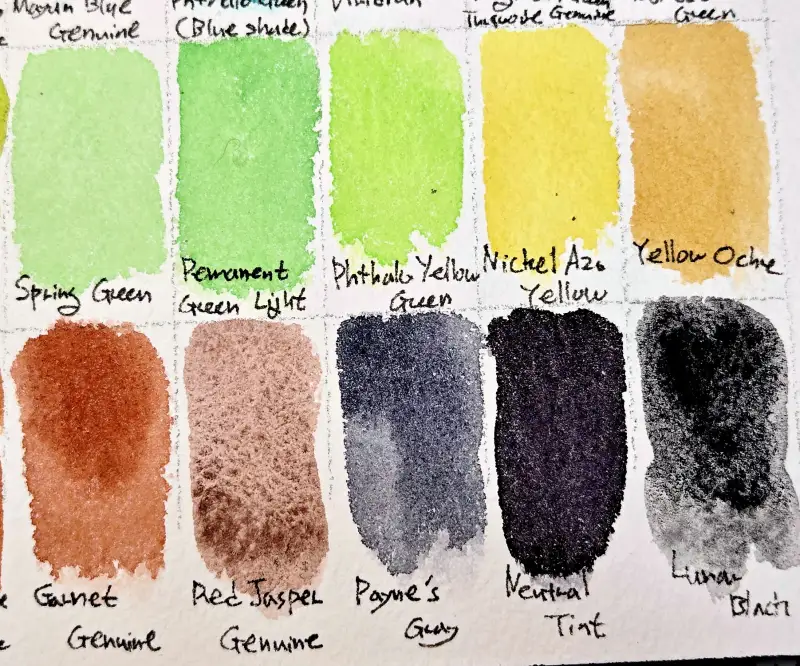 Mayan Blue
Genuine
(Blue shade)
Turquoise Genuine
Green
Spring Green
Pemanent
Green Light
Phthalo Yellow
Green
Nickel Azo
Yellow
Yellow Ochre
Garnet
Genuine
Red Jasper
Genuine
Payne's
Gray
Neutral
Tint
Lunar
Black